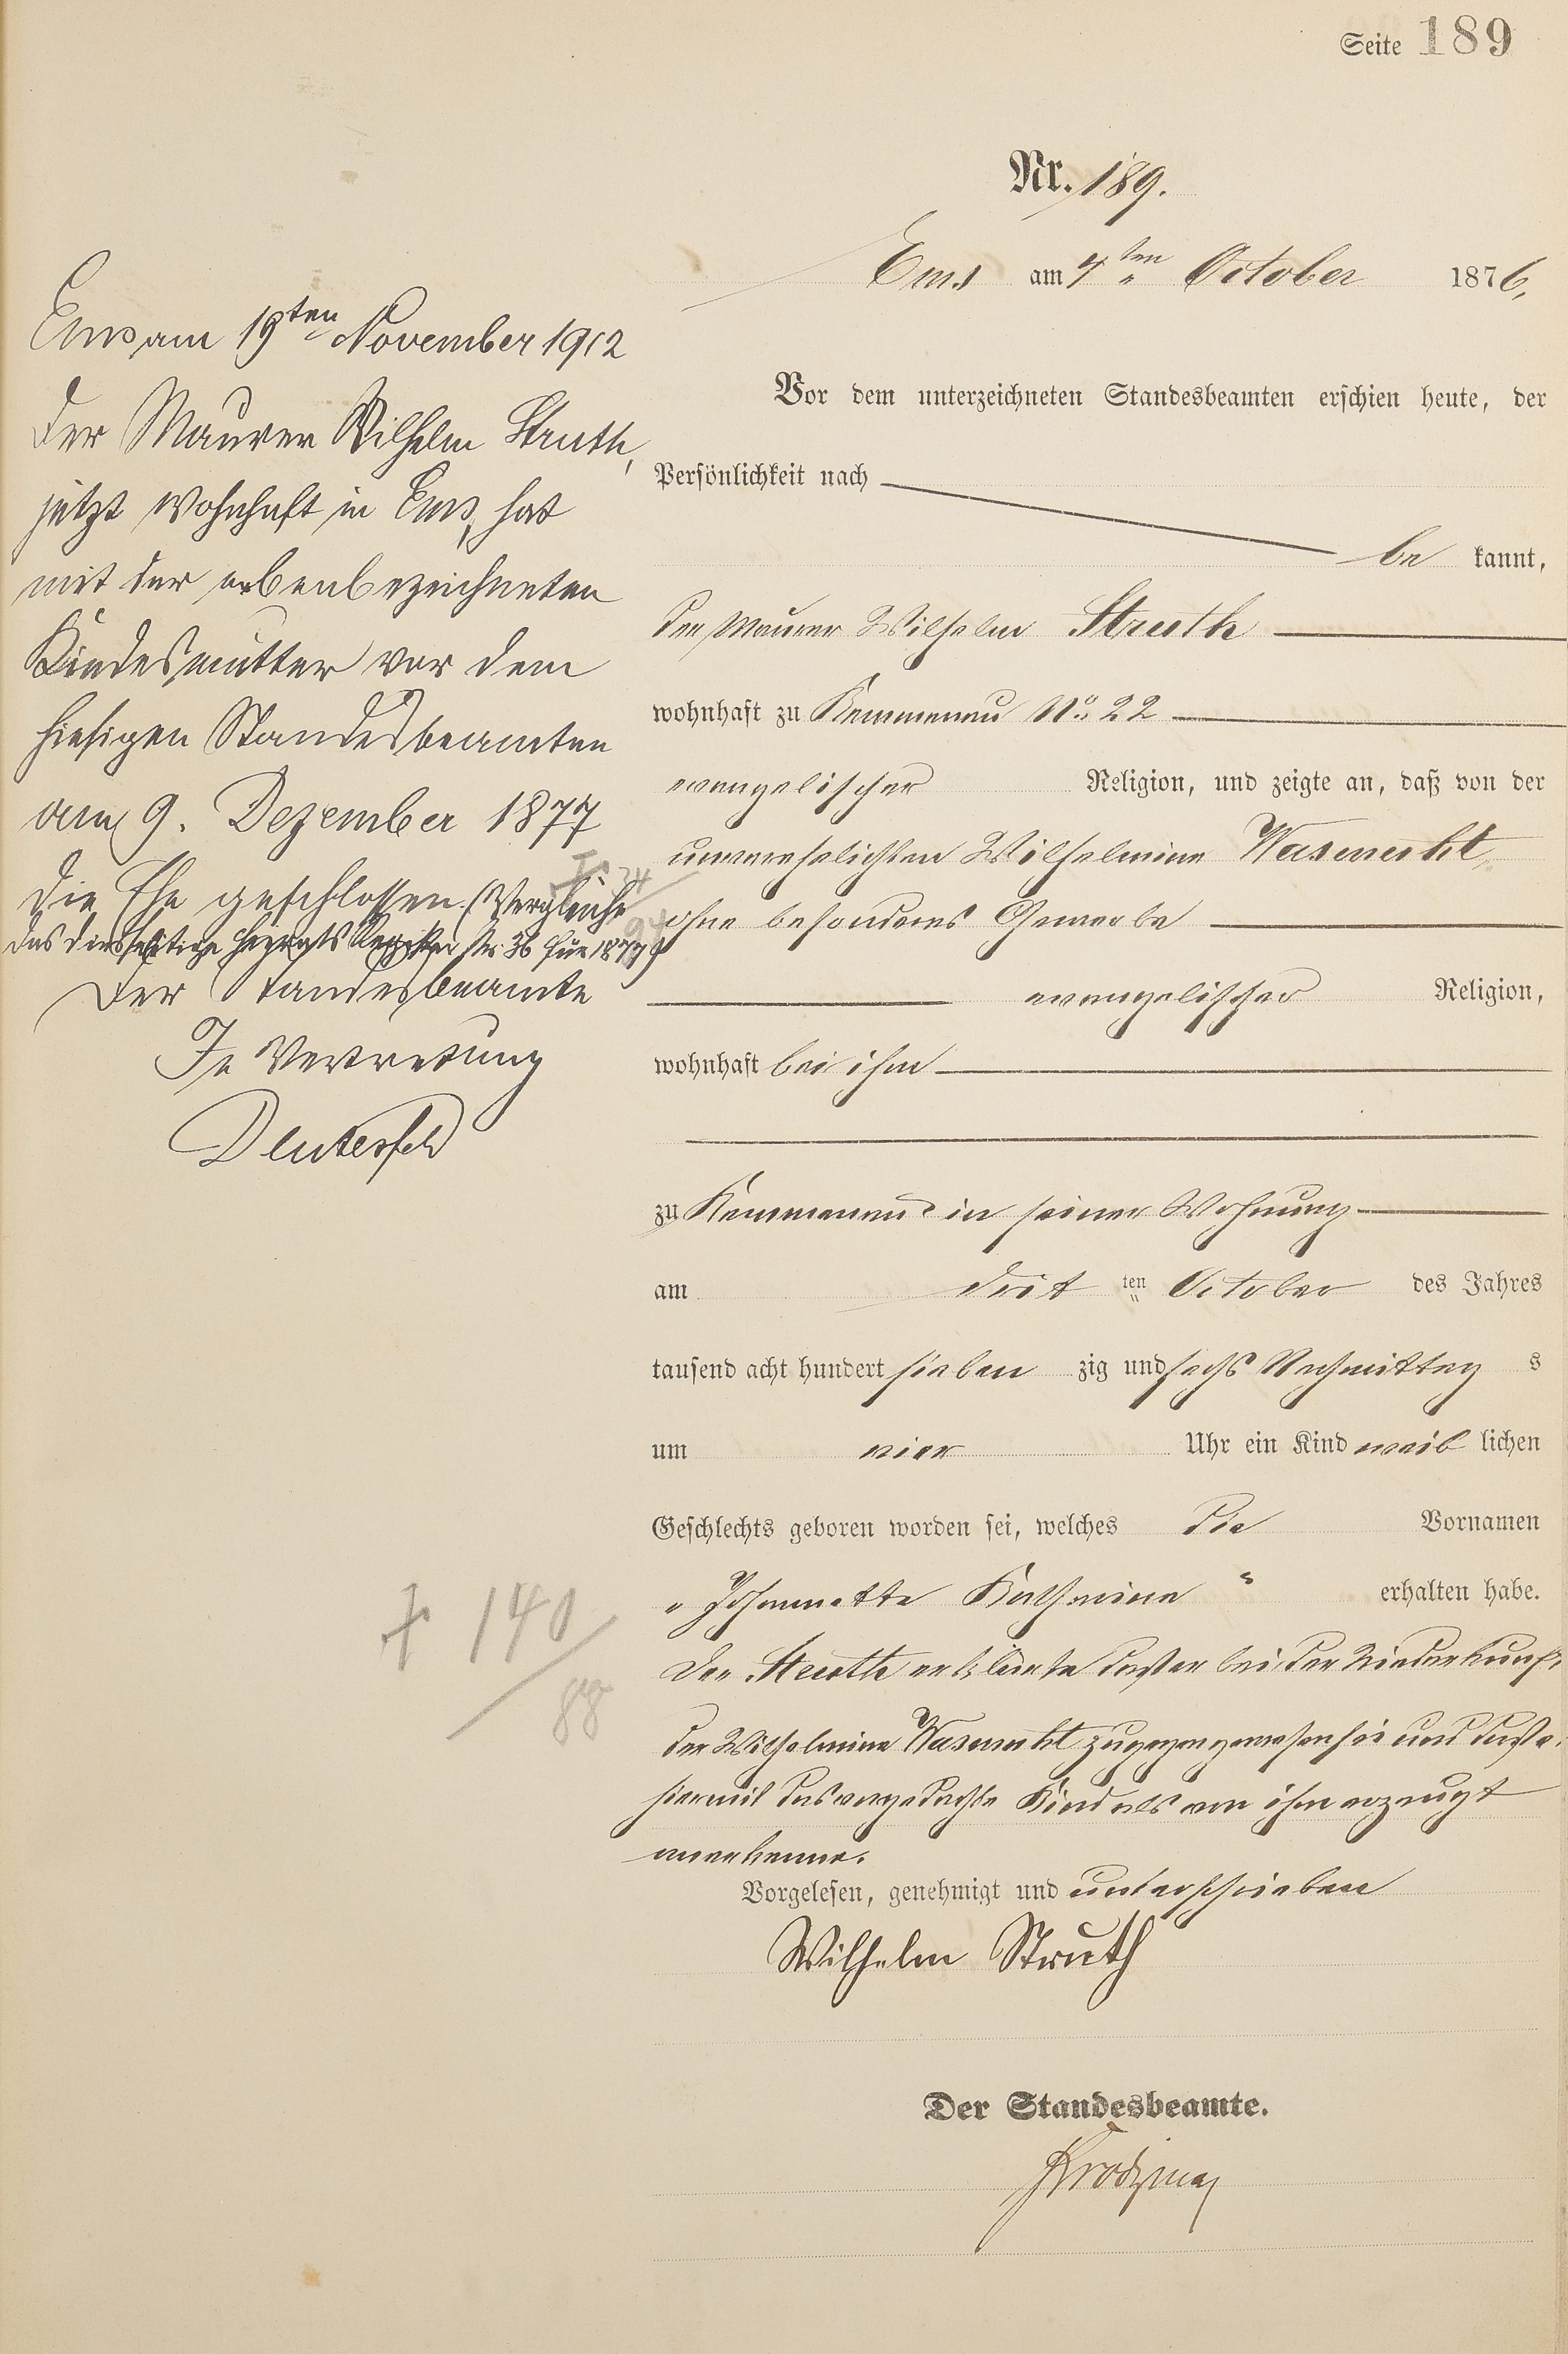 Seite 189
Nr. 189.
Ems am 4ten October 1876,
Vor dem unterzeichneten Standesbeamten erschien heute, der
Persönlichkeit nach
be kannt,
der Maurer Wilhelm Struth
wohnhaft zu Kemmenau No. 22
evangelischer Religion, und zeigte an, daß von der
unverehelichten Wilhelmine
ohne besonderes Gewerbe
evangelischer Religion,
wohnhaft bei ihm
zu Kemmenau in seiner Wohnung
am drit ten October des Jahres
tausend acht hundert sieben zig und sechs Nachmittag s
um vier Uhr ein Kind weib lichen
Geschlechts geboren worden sei, welches die Vornamen
" Johannette Kathrina " erhalten habe.
Der Struth erklärte daß er bei der Niederkunft
der Wilhelmine zugegen gewesen sei und daß er
hiermit das vorgedachte Kind als von ihm erzeugt
anerkenne.
Vorgelesen, genehmigt und unterschrieben
Wilhelm Struth
Der Standesbeamte.
Ems am 19ten November 1912
Der Maurer Wilhelm Struth,
jetzt wohnhaft in Ems, hat
mit der nebenbezeichneten
Kindesmutter vor dem
hiesigen Standesbeamten
am 9. Dezember 1877
die Ehe geschlossen. (Vergleiche
das diesseitige Heirats Register Nr. 36 für 1877)
Der Standesbeamte
In Vertretung
† 140
88